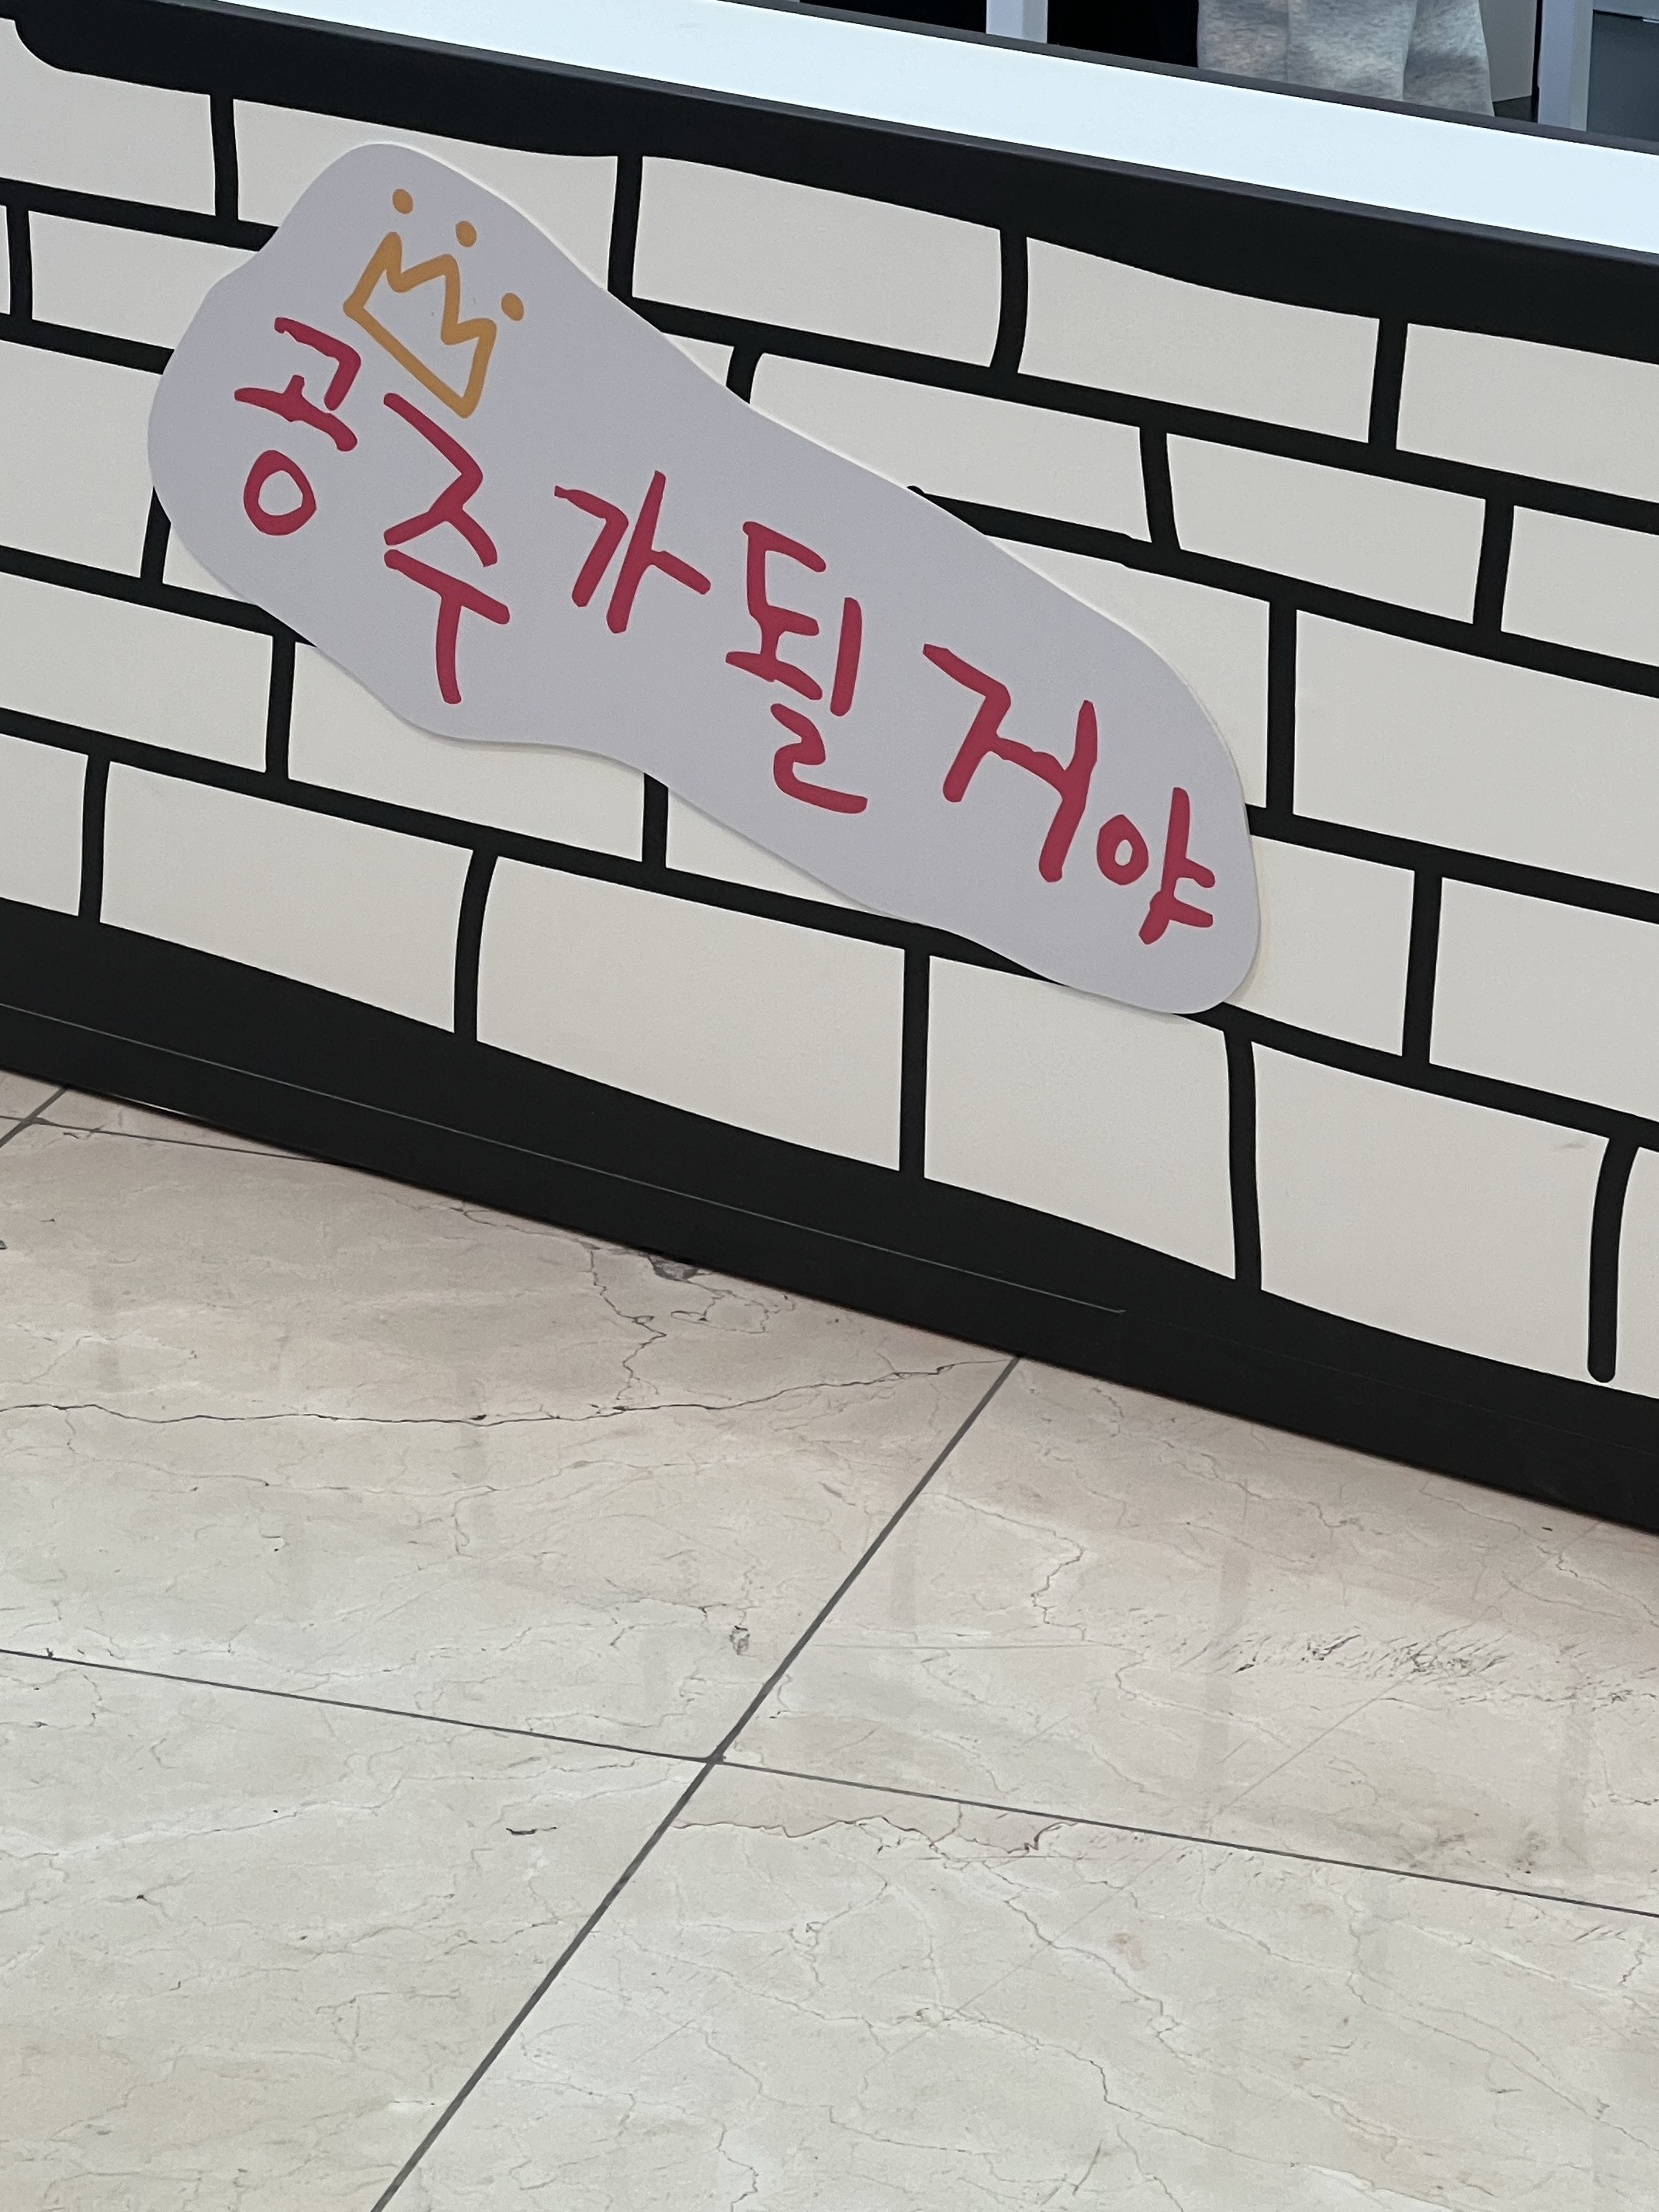 공주가 될 거야